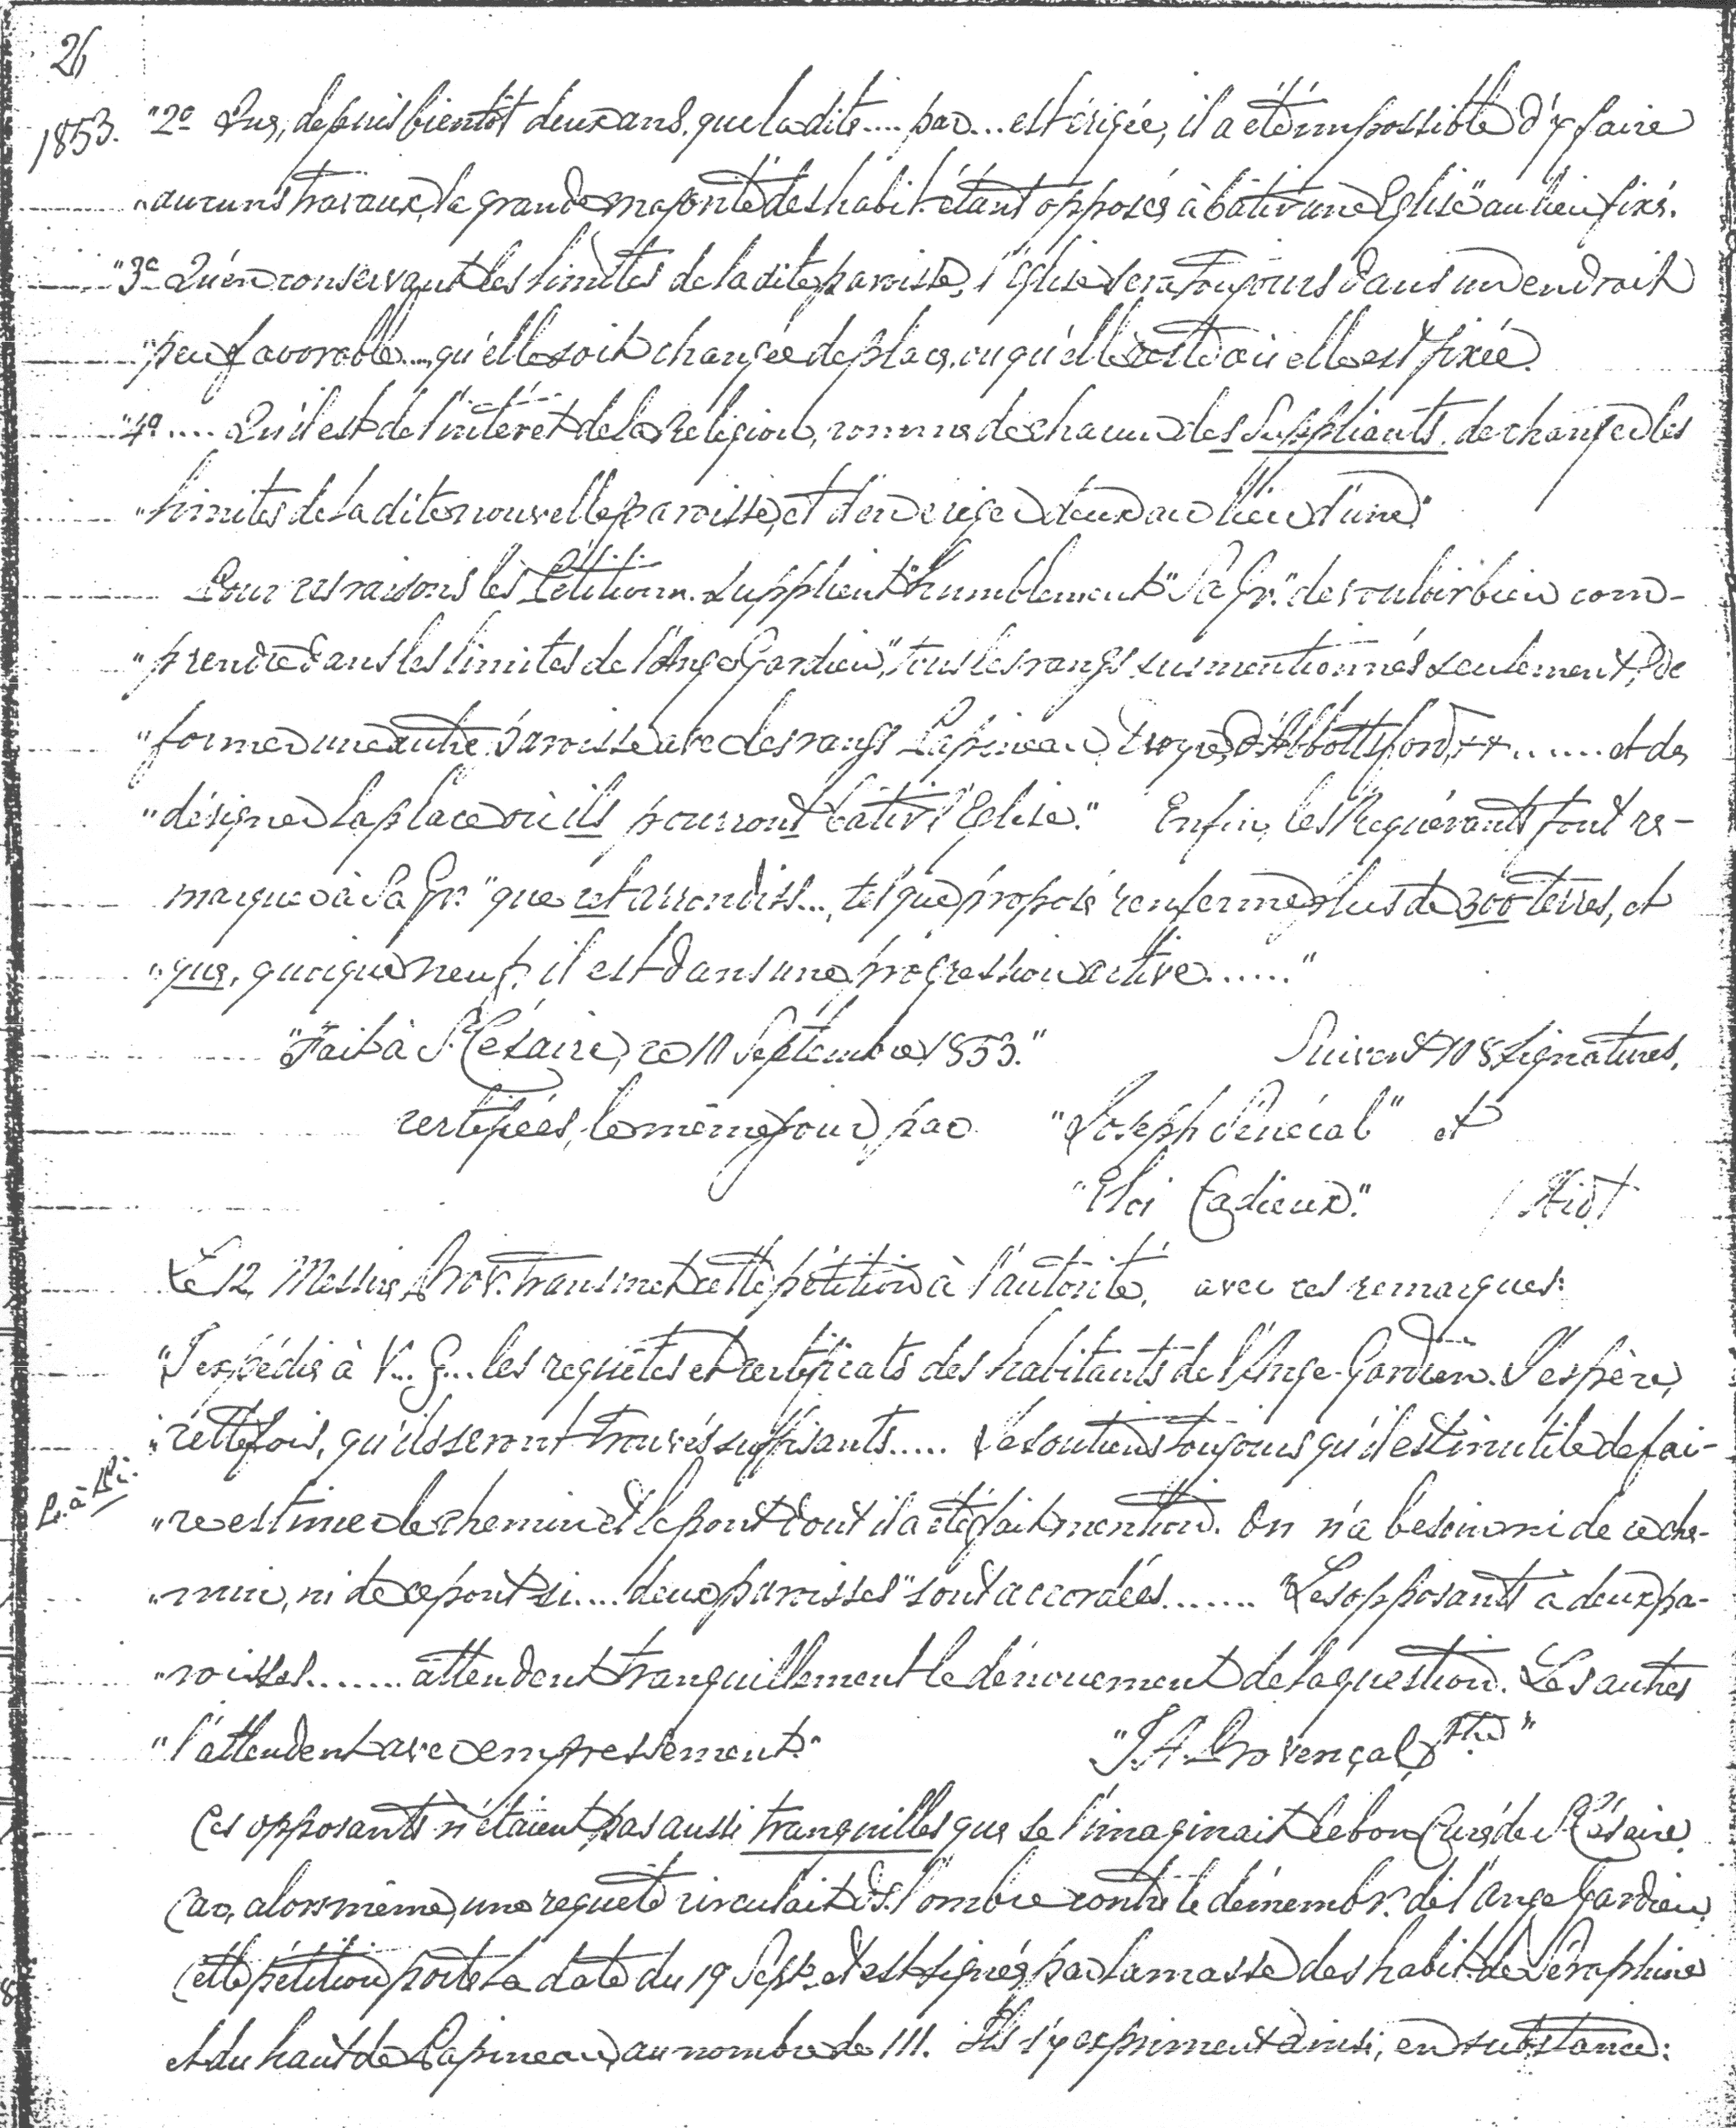 26
1853. "2º Que, depuis bientôt deux ans, que la dite.... par... est érigée, il a été impossible d'y faire
"aucuns travaux, la grande majorité des habit. étant opposés à bâtir une Eglise "au lieu fixé.
"3º Qu'en conservant les limites de la dite paroisse, l'Eglise sera toujours dans un endroit
"peu favorable.... qu'elle soit changée de place, ou qu'elle reste où elle est fixée.
"4º .... Qu'il est de l'intérêt de la Religion, comme de chacun des Suppliants, de changer les
"limites de la dite nouvelle paroisse, et d'en ériger deux au lieu d'une."
Pour ces raisons les Pétitionn. supplient "humblement" Sa Gr. "de vouloir bien com-
"prendre dans les limites de l'Ange Gardien", tous les rangs sus mentionnés seulement, & de
"former une autre Paroisse avec les rangs Papineau, Elmire, d'Abbottsford, ++ ...... et de
"désigner la place où ils pourront bâtir l'Eglise." Enfin, les Requérants font re-
marquer à Sa Gr. "que cet arrondiss..., tel que proposé renferme plus de 300 terres, et
"que, quoique neuf, il est dans une progression active......"
"Fait à St Césaire, ce 10 Septembre 1853." Suivent 108 signatures,
certifiées, le même jour, par "Joseph Sénécal" et
"Eloi Cadieux."
Le 12, Messire Prov. transmet cette pétition à l'autorité, avec ces remarques:
"J'expédie à V... G... les requêtes et certificats des habitants de l'Ange-Gardien. J'espère,
"cette fois, qu'ils seront trouvés suffisants..... Je soutiens toujours qu'il est inutile de fai-
"re estimer le chemin et le pont dont il a été fait mention. On n'a besoin ni de ce che-
"min, ni de ce pont si.... deux paroisses "sont accordées....... "Les opposants à deux pa-
"roisses....... attendent tranquillement le dénouement de la question. Les autres
"l'attendent avec empressement." "J. A. Provençal, Ptre"
Ces opposants n'étaient pas aussi tranquilles que se l'imaginait le bon Curé de St Césaire,
Car, alors même, une requête circulait ds. l'ombre contre le démembr. de l'Ange Gardien.
Cette pétition porte la date du 19 Sept. et est signée par la masse des habit. de Séraphine
et du haut de Papineau, au nombre de 111. Ils s'y expriment ainsi, en substance: